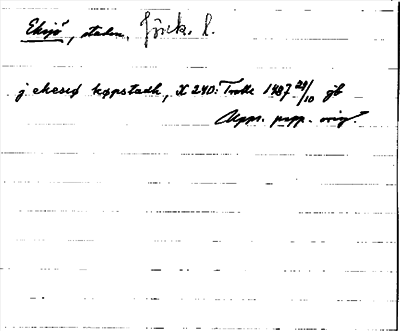 Eksjö, staden, Jönk. l.
j ekesiø køpstadh, X 240: Trolle 1487 29/10 gb
Uppr. papp. orig.